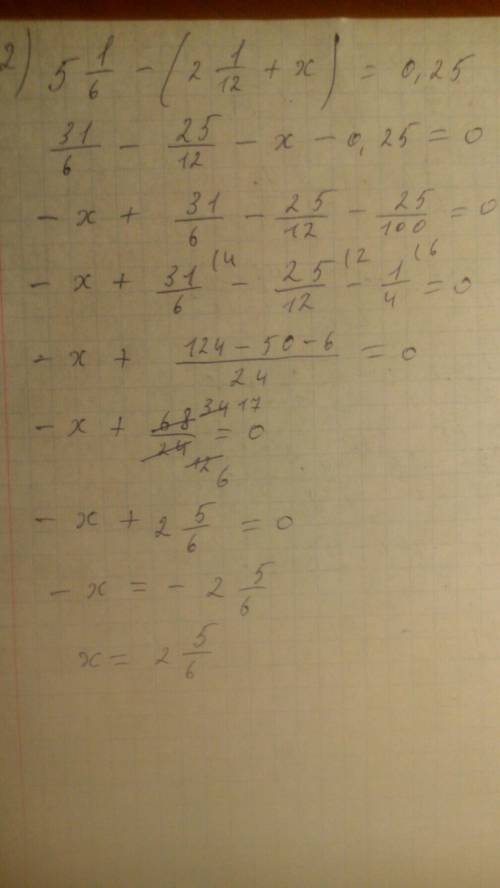 2) 5 1/6 - (2 1/12 + x) = 0,25
31/6 - 25/12 - x - 0,25 = 0
- x + 31/6 - 25/12 - 25/100 = 0
- x + 31/6 (4 - 25/12 (2 - 1/4 (6 = 0
- x + 124 - 50 - 6 / 24 = 0
- x + 68 34 17 / 24 12 6 = 0
- x + 2 5/6 = 0
- x = - 2 5/6
x = 2 5/6